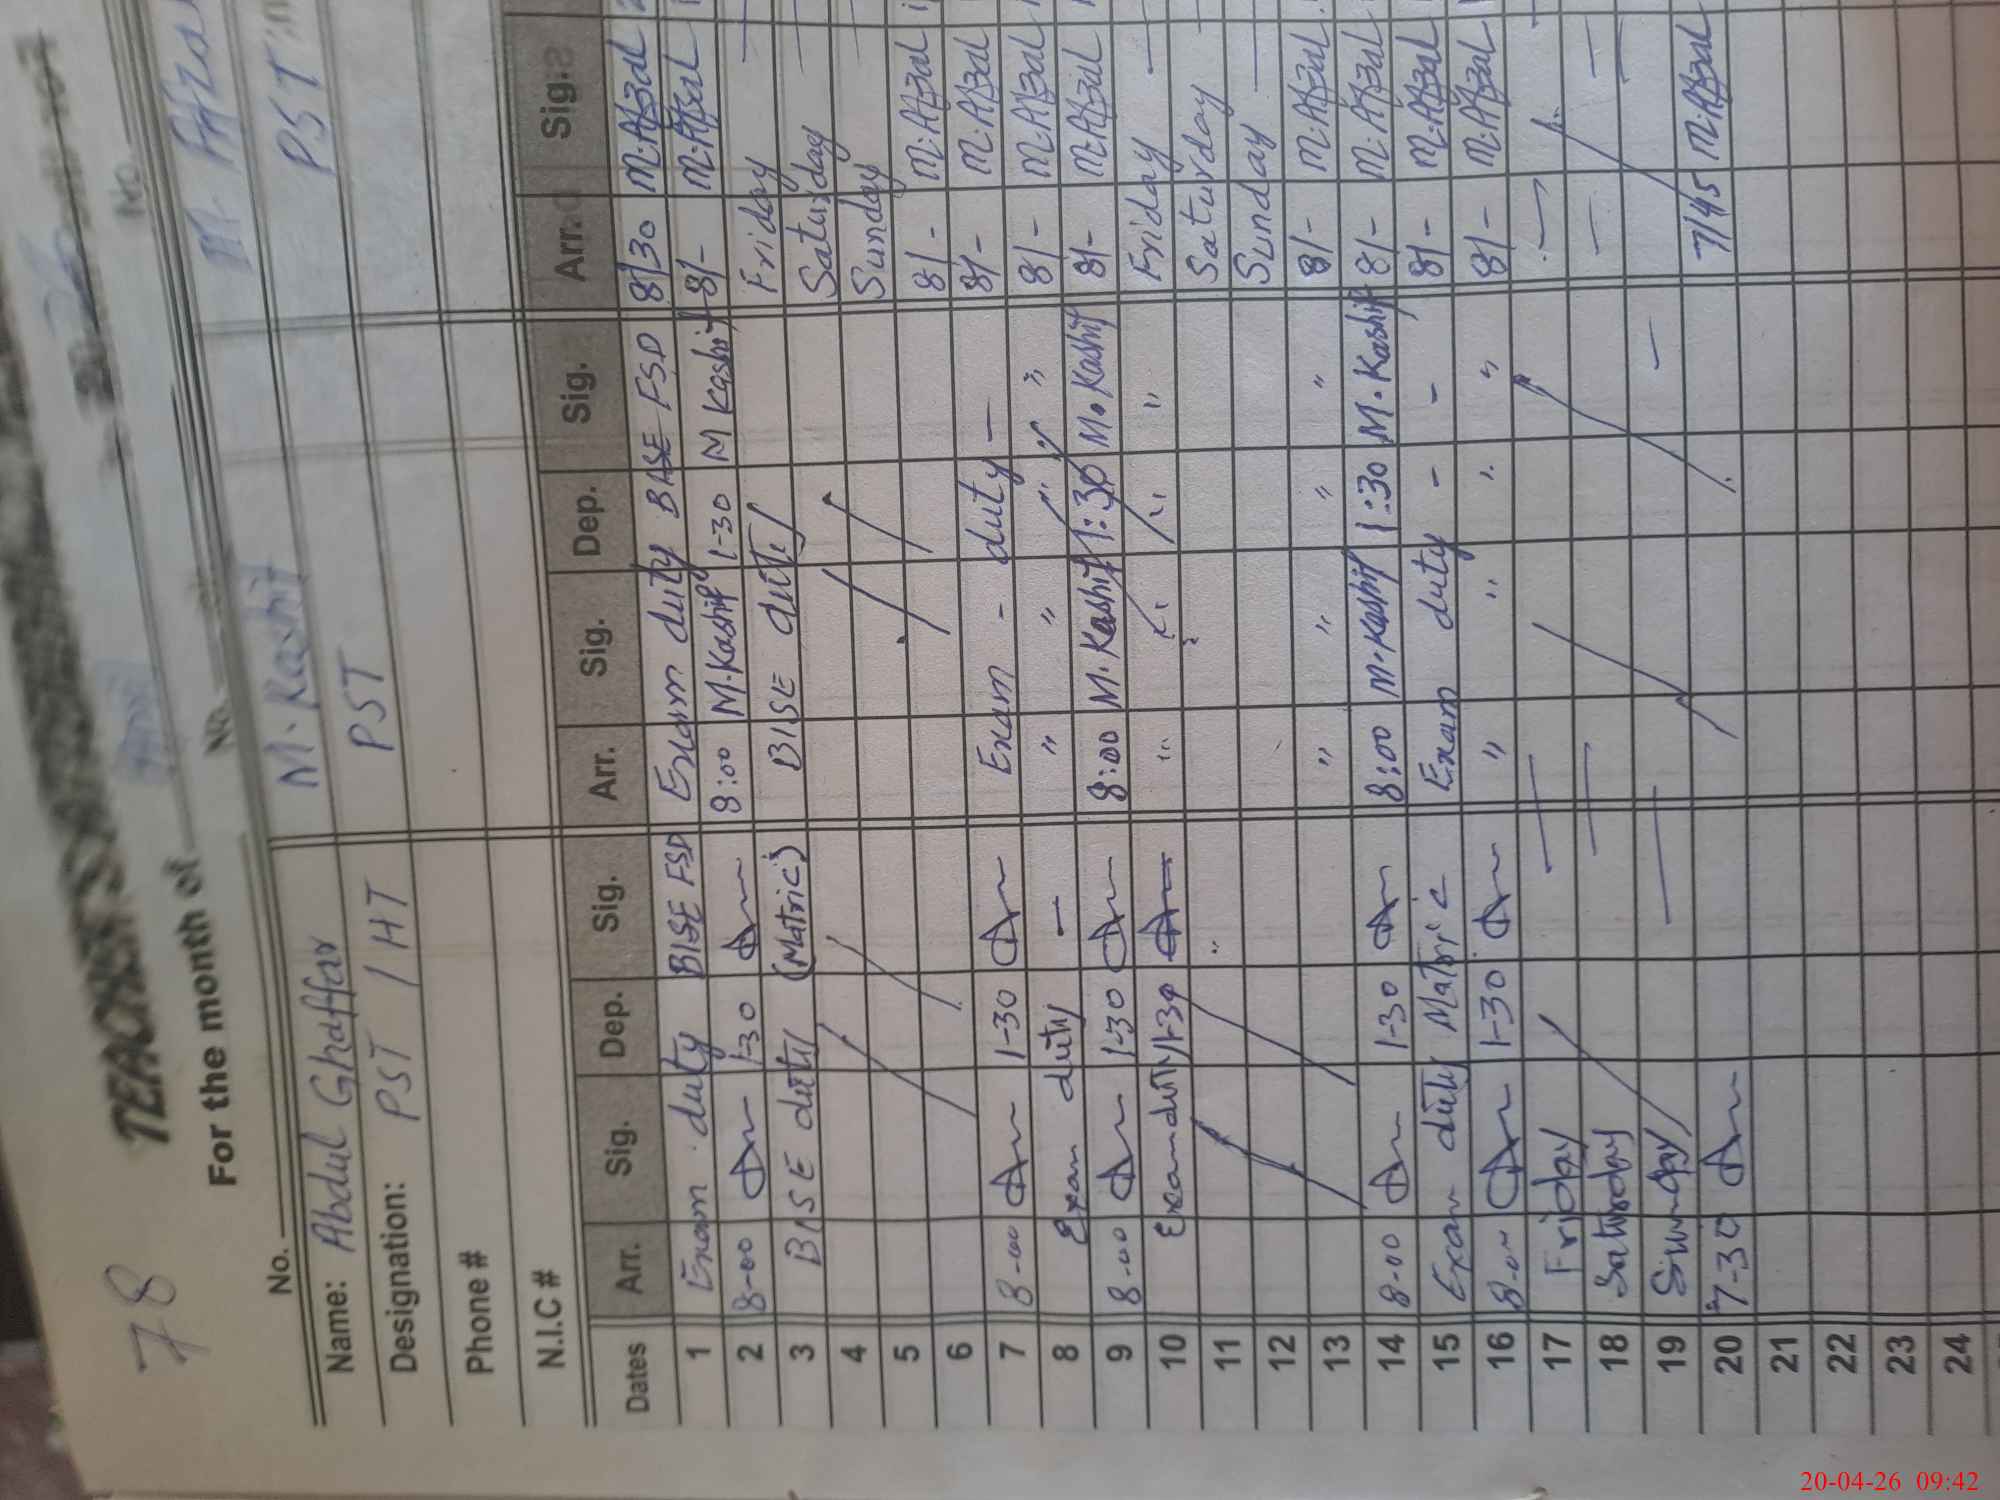 78
TEACHER'S
For the month of
No. No. No.
Name: Abdul Ghaffar M. Kashif M. Afzal
Designation: PST / HT PST PST
Phone #
N.I.C #
Dates Arr. Sig. Dep. Sig. Arr. Sig. Dep. Sig. Arr. Sig.
1 Exam duty BISE FSD Exam duty BISE FSD 8/30 M.Afzal
2 8-00 1-30 8:00 M.Kashif 1-30 M Kashif 8/- M.Afzal
3 BISE duty (Matric) BISE duty Friday
4 Saturday
5 Sunday
6 8/- M.Afzal
7 8-00 1-30 Exam - duty - 8/- M.Afzal
8 Exam duty - " " " " 8/- M.Afzal
9 8-00 1-30 8:00 M.Kashif 1:30 M.Kashif 8/- M.Afzal
10 Exam duty 1-30 " " " " Friday
11 Saturday
12 Sunday
13 " " " " 8/- M.Afzal
14 8-00 1-30 8:00 M.Kashif 1:30 M.Kashif 8/- M.Afzal
15 Exam duty Matric Exam duty - - 8/- M.Afzal
16 8-00 1-30 " " " " 8/- M.Afzal
17 Friday
18 Saturday
19 Sunday
20 7-30 7/45 M.Afzal
21
22
23
24
20-04-26 09:42